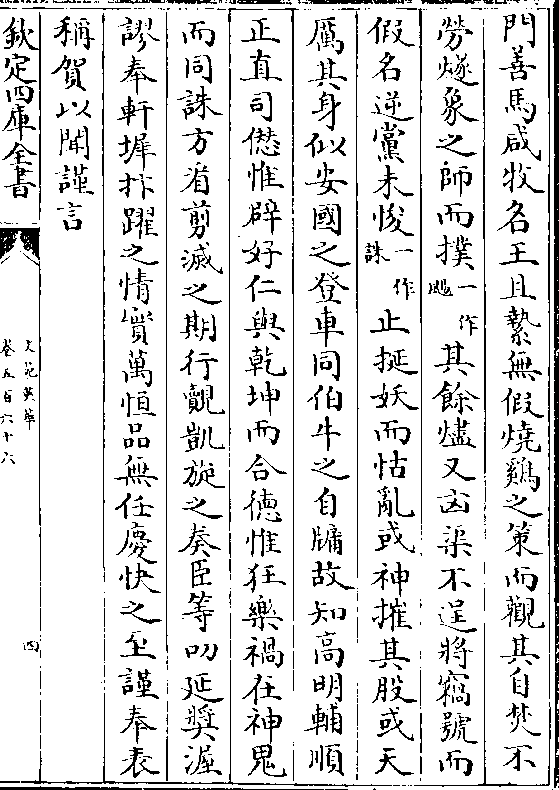 門善馬咸牧名王且縶無假燒鷄之策而觀其自焚不
勞燧象之師而撲一作颺其餘燼又㐫渠不逞將竊號而
假名逆黨未悛一作誅止挻妖而怙亂或神摧其股或天
厲其身似安國之登車同伯牛之自牖故知高明輔順
正直司僁惟辟好仁與乾坤而合德惟狂樂禍在神鬼
而同誅方㸔剪滅之期行覿凱旋之奏臣等叨延奬渥
謬奉軒墀抃躍之情實萬恒品無任慶快之至謹奉表
稱賀以聞謹言
欽定四庫全書
文苑英華
卷五百六十六
四